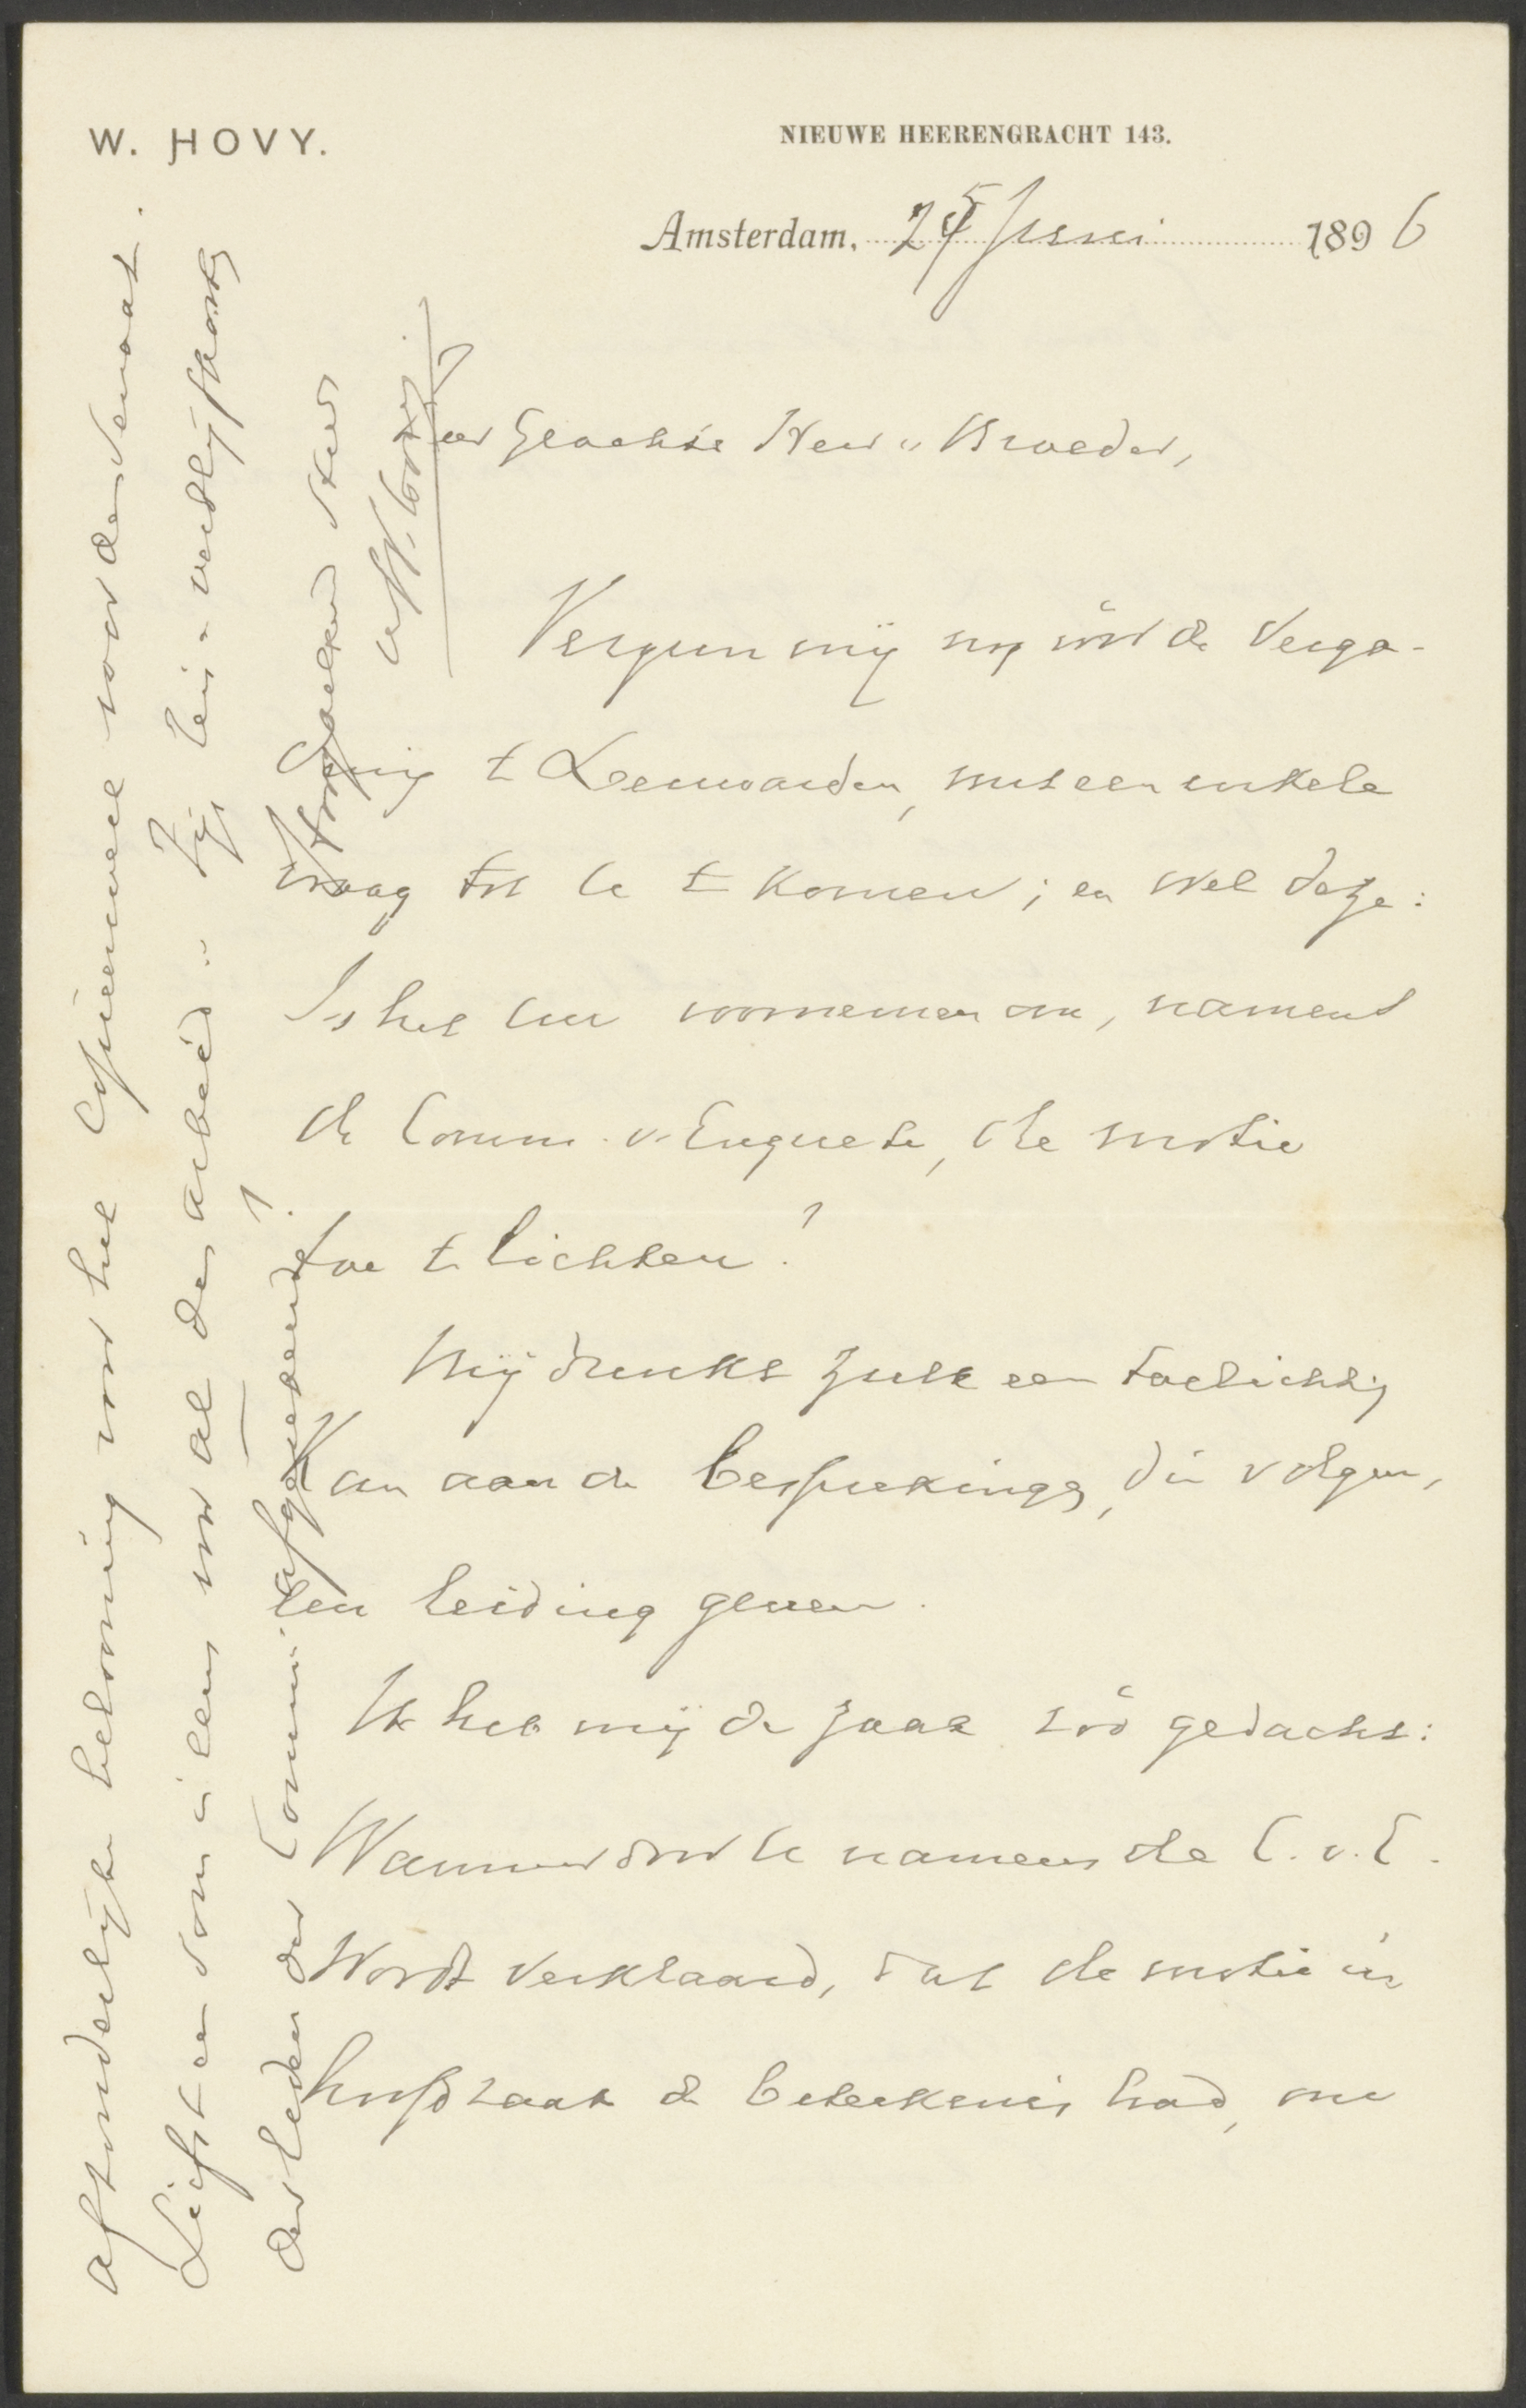 W. HOVY.
NIEUWE HEERENGRACHT 143.
Amsterdam, 25 Juni 1896
Zeer Geachte Heer & Broeder,
Vergun mij nog vóór de Verga-
dering te Leeuwarden, met een enkele
vraag tot U te komen; en wel deze:
Is het Uw voornemen om, namens
de Comm. v. Enquete, de motie
toe te lichten?
Mij dunkt zulk een toelichting
Kan aan de besprekingen, die volgen,
een leiding geven.
Ik heb mij de zaak zóó gedacht:
Wanneer door U namens de C. v. E.
Wordt verklaard, dat de motie in
hoofdzaak de beteekenis had, om
afzonderlijke belooning voor het
voor den Senaat.
Zijn
voor al den arbeid
der leden der Commi: afgeteekend?
Hoogachtend
W. Hovy